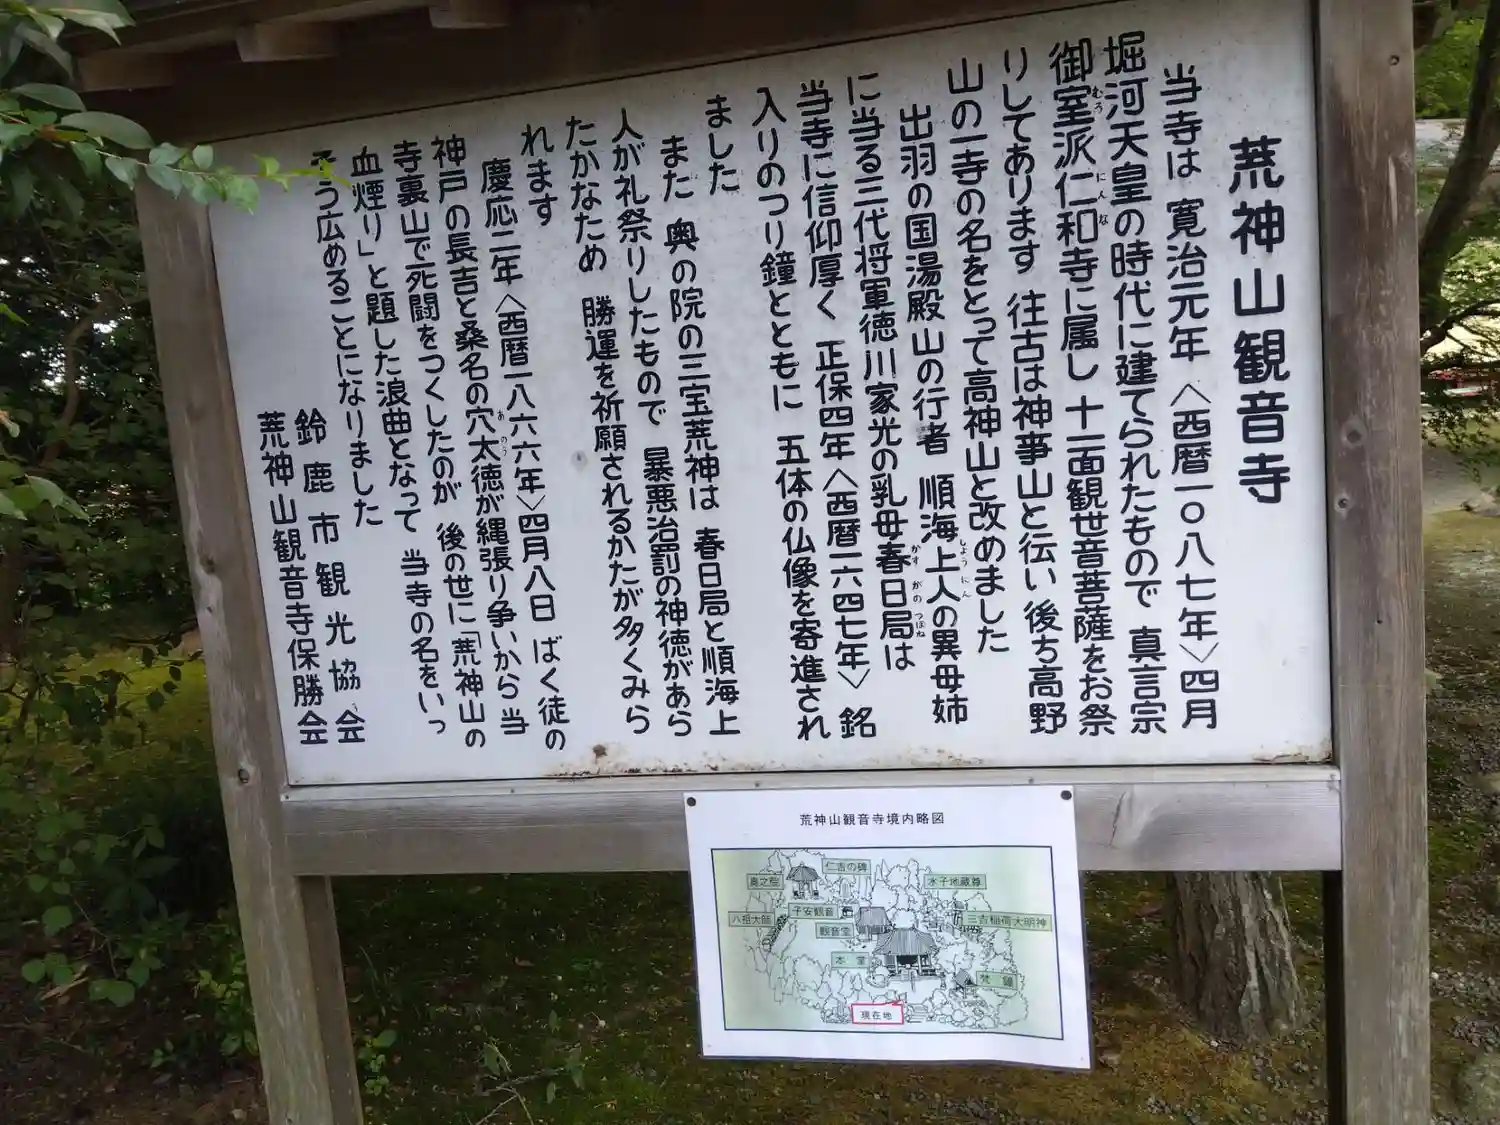 荒神山観音寺
当寺は 寛治元年〈西暦一〇八七年〉四月
堀河天皇の時代に建てられたもので 真言宗
御室派仁和寺に属し 十一面観世音菩薩をお祭
むろ にんな
りしてあります 往古は神事山と伝い 後ち高野
山の一寺の名をとって高神山と改めました
出羽の国湯殿山の行者 順海上人の異母姉
しょうにん
に当る三代将軍徳川家光の乳母春日局は
かすがのつぼね
当寺に信仰厚く 正保四年〈西暦一六四七年〉銘
入りのつり鐘とともに 五体の仏像を寄進され
ました
また 奥の院の三宝荒神は 春日局と順海上
人が礼祭りしたもので 暴悪治罰の神徳があら
たかなため 勝運を祈願されるかたが多くみら
れます
慶応二年〈西暦一八六六年〉四月八日 ばく徒の
神戸の長吉と桑名の穴太徳が縄張り争いから 当
あのう
寺裏山で死闘をつくしたのが 後の世に「荒神山の
血煙り」と題した浪曲となって 当寺の名をいっ
そう広めることになりました
鈴鹿市観光協会
荒神山観音寺保勝会
荒神山観音寺境内略図
仁吉の碑
奥之院
水子地蔵尊
子安観音
八祖大師
三吉稲荷大明神
観音堂
本堂
梵鐘
現在地